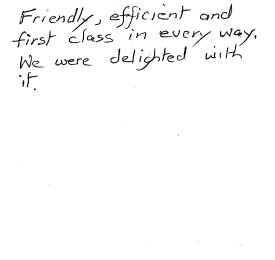 Friendly, efficient and
first class in every way.
We were delighted with
it.